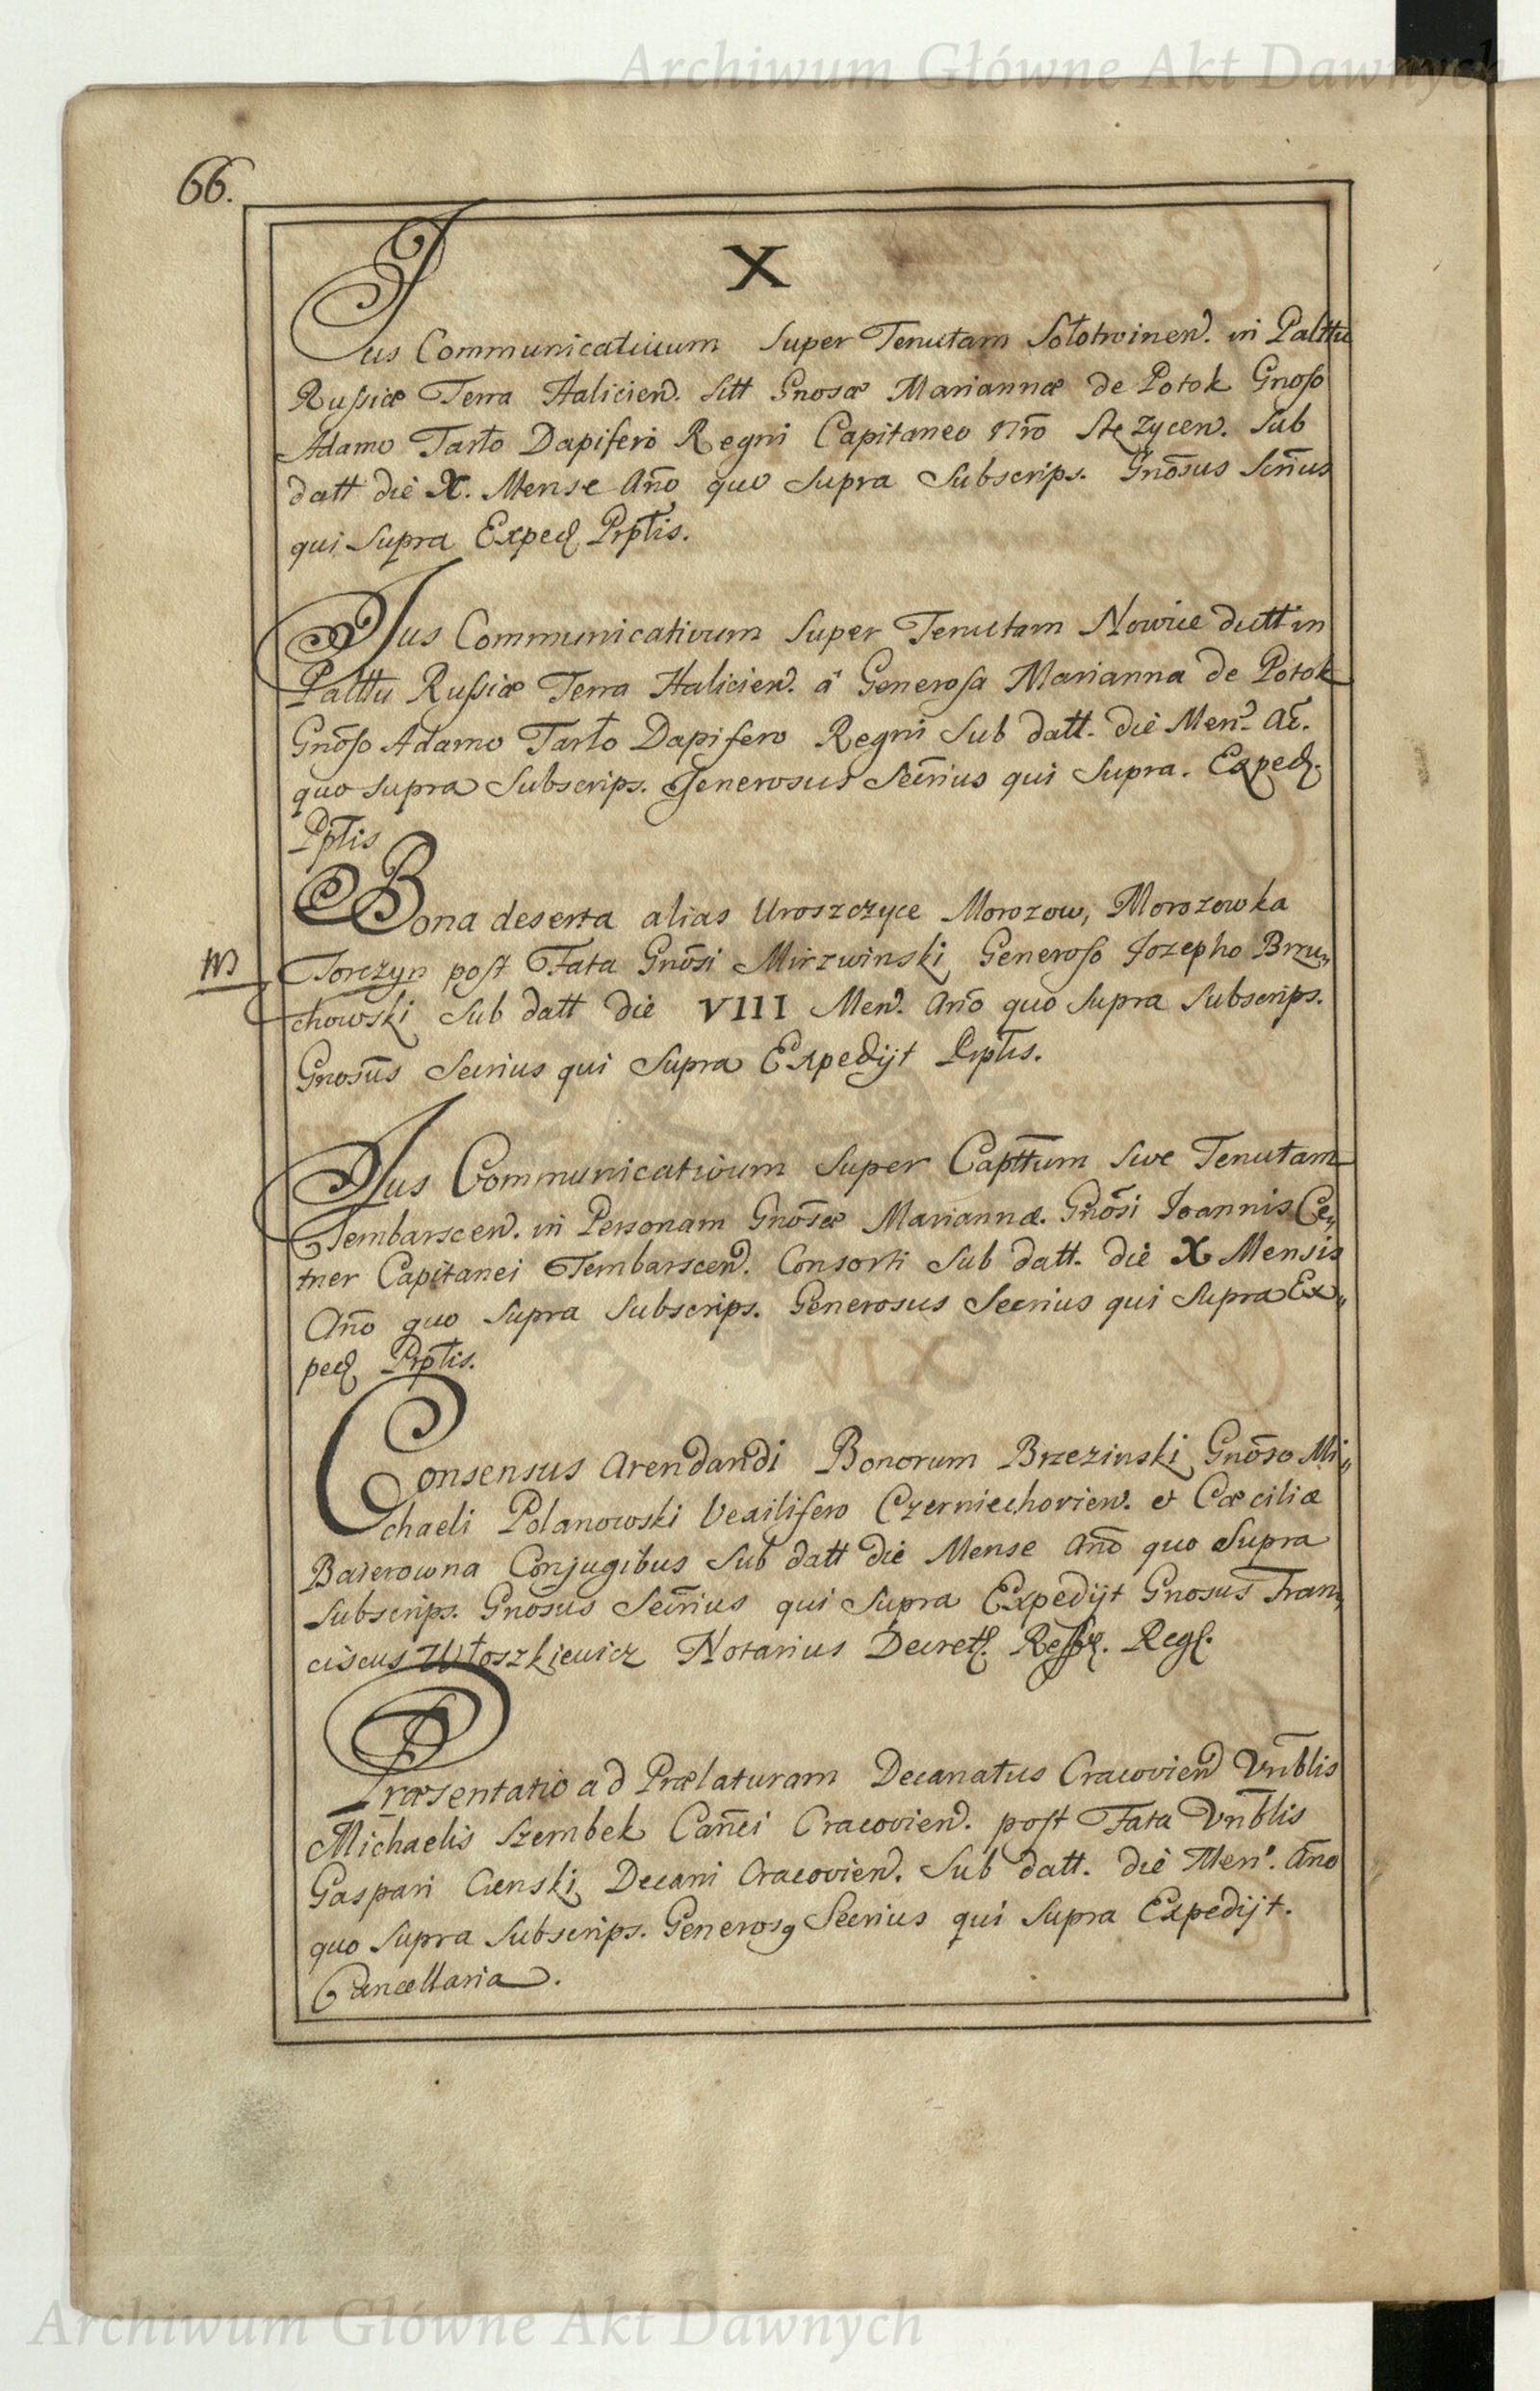 Archiwum Główne Akt Dawnych
66.
X
Jus Communicativum Super Tenutam Sołotwinen. in Palttu
Russiæ Terra Halicien. sitt Gnosæ Mariannæ de Potok Gnoso
Adamo Tarło Dapifero Regni Capitaneo Nro Stężycen. Sub
datt die X. Mense Año quo Supra Subscrips. Gnosus Scrius
qui Supra Exped Prptis.
Jus Communicativum Super Tenutam Nowice dutt in
Palttu Russiæ Terra Halicien. á Generosa Marianna de Potok
Gnoso Adamo Tarło Dapifero Regni Sub datt. die Men. Ao.
quo supra Subscrips. Generosus Secrius qui Supra. Exped.
Pptis
Bona deserta alias Uroszczyce Morozow, Morozowka
NB
Torczyn post Fata Gnosi Mirzwinski Generoso Jozepho Brzu„
chowski Sub datt die VIII Men. Año quo Supra Subscrips.
Gnosus Secrius qui Supra Expedijt Prptis.
Jus Communicativum Super Capttum sive Tenutam
Tembarscen. in Personam Gnosæ Mariannæ. Gnosi Joannis Ce„
tner Capitanei Tembarscen. Consorti Sub datt. die X Mensis
Año quo Supra Subscrips. Generosus Secrius qui Supra Ex„
ped Prptis.
Consensus Arendandi Bonorum Brzezinski Gnoso Mi„
chaeli Polanowski Vexilifero Czerniechovien. et Cæciliæ
Baierowna Conjugibus Sub datt die Mense Año quo Supra
Subscrips. Gnosus Secrius qui Supra Expedijt Gnosus Fran„
ciscus Włoszkiewicz Notarius Decret. Regl.
Præsentatio ad Prælaturam Decanatus Cracovien Vnblis
Michaelis Szembek Canci Cracovien. post Fata Vnblis
Gaspari Cienski Decani Cracovien. Sub datt. die Men. Año
quo Supra Subscrips. Generosq Secrius qui Supra Expedijt.
Cancellaria.
Archiwum Główne Akt Dawnych